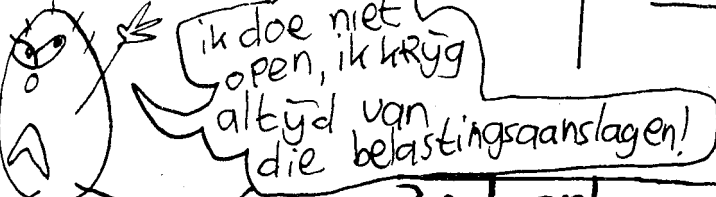 ik doe niet
open, ik krijg
altijd van
die belastingsaanslagen!